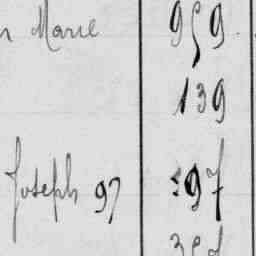 Marie 959
139
Joseph 97 197